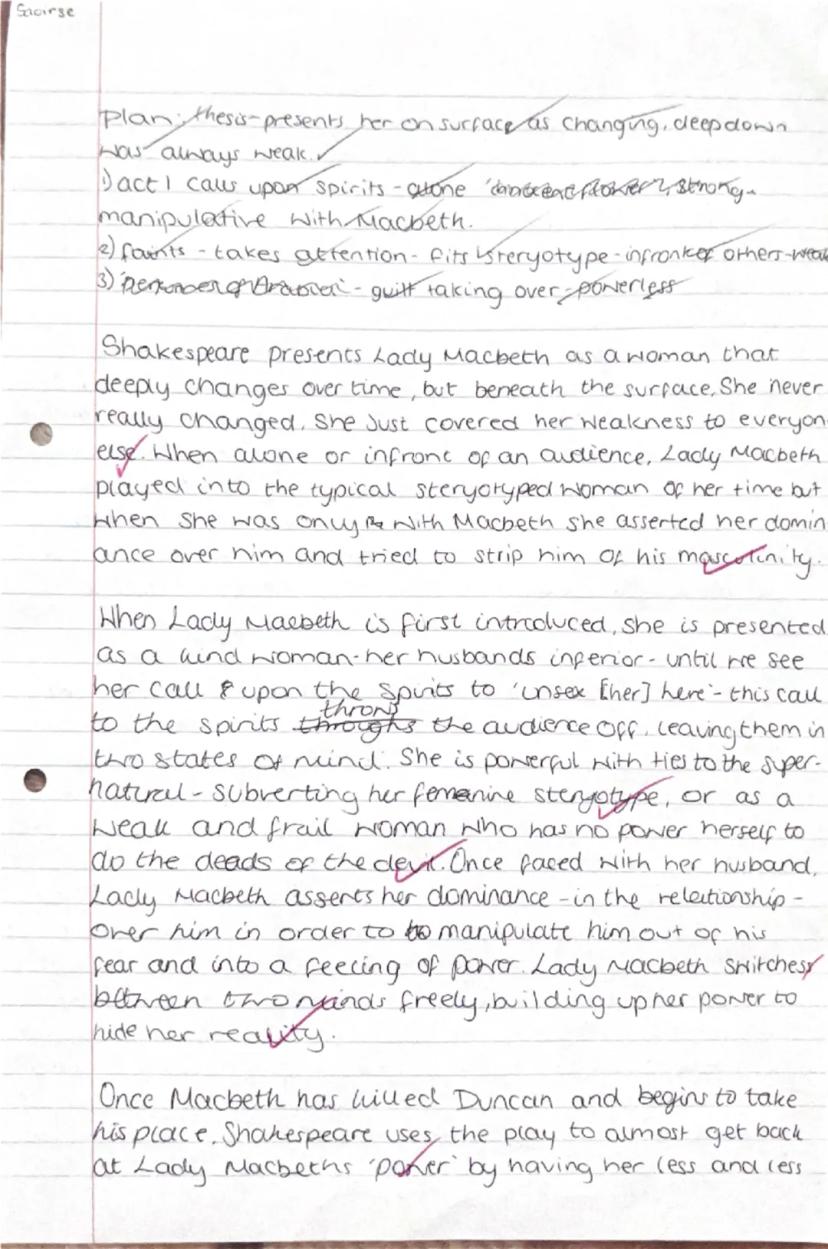 Saoirse
Plan: thesis-presents her on surface as changing, deep down
was always weak.
1) act 1 calls upon spirits - alone 'innocent flower', strong-
manipulative with Macbeth.
2) faints - takes attention - fits steryotype - infront of others - weak
3) - guilt taking over - powerless
Shakespeare presents Lady Macbeth as a woman that
deeply changes over time, but beneath the surface. She never
really changed. She Just covered her weakness to everyon
else. When alone or infront of an audience, Lady Macbeth
played into the typical steryotyped woman of her time but
when she was only with Macbeth she asserted her domin
ance over him and tried to strip him of his masculinity.
When Lady Macbeth is first introduced, she is presented
as a kind woman - her husbands inferior - until we see
her call upon the Spirits to 'unsex [her] here' - this call
to the spirits throws the audience off, leaving them in
two states of mind. She is powerful with ties to the super-
natural - subverting her femenine steryotype, or as a
weak and frail woman who has no power herself to
do the deads of the devil. Once faced with her husband,
Lady Macbeth asserts her dominance - in the relationship -
over him in order to manipulate him out of his
fear and into a feeling of power. Lady Macbeth switches
between two minds freely, building up her power to
hide her reality.
Once Macbeth has killed Duncan and begins to take
his place, Shakespeare uses the play to almost get back
at Lady Macbeths 'power' by having her less and less